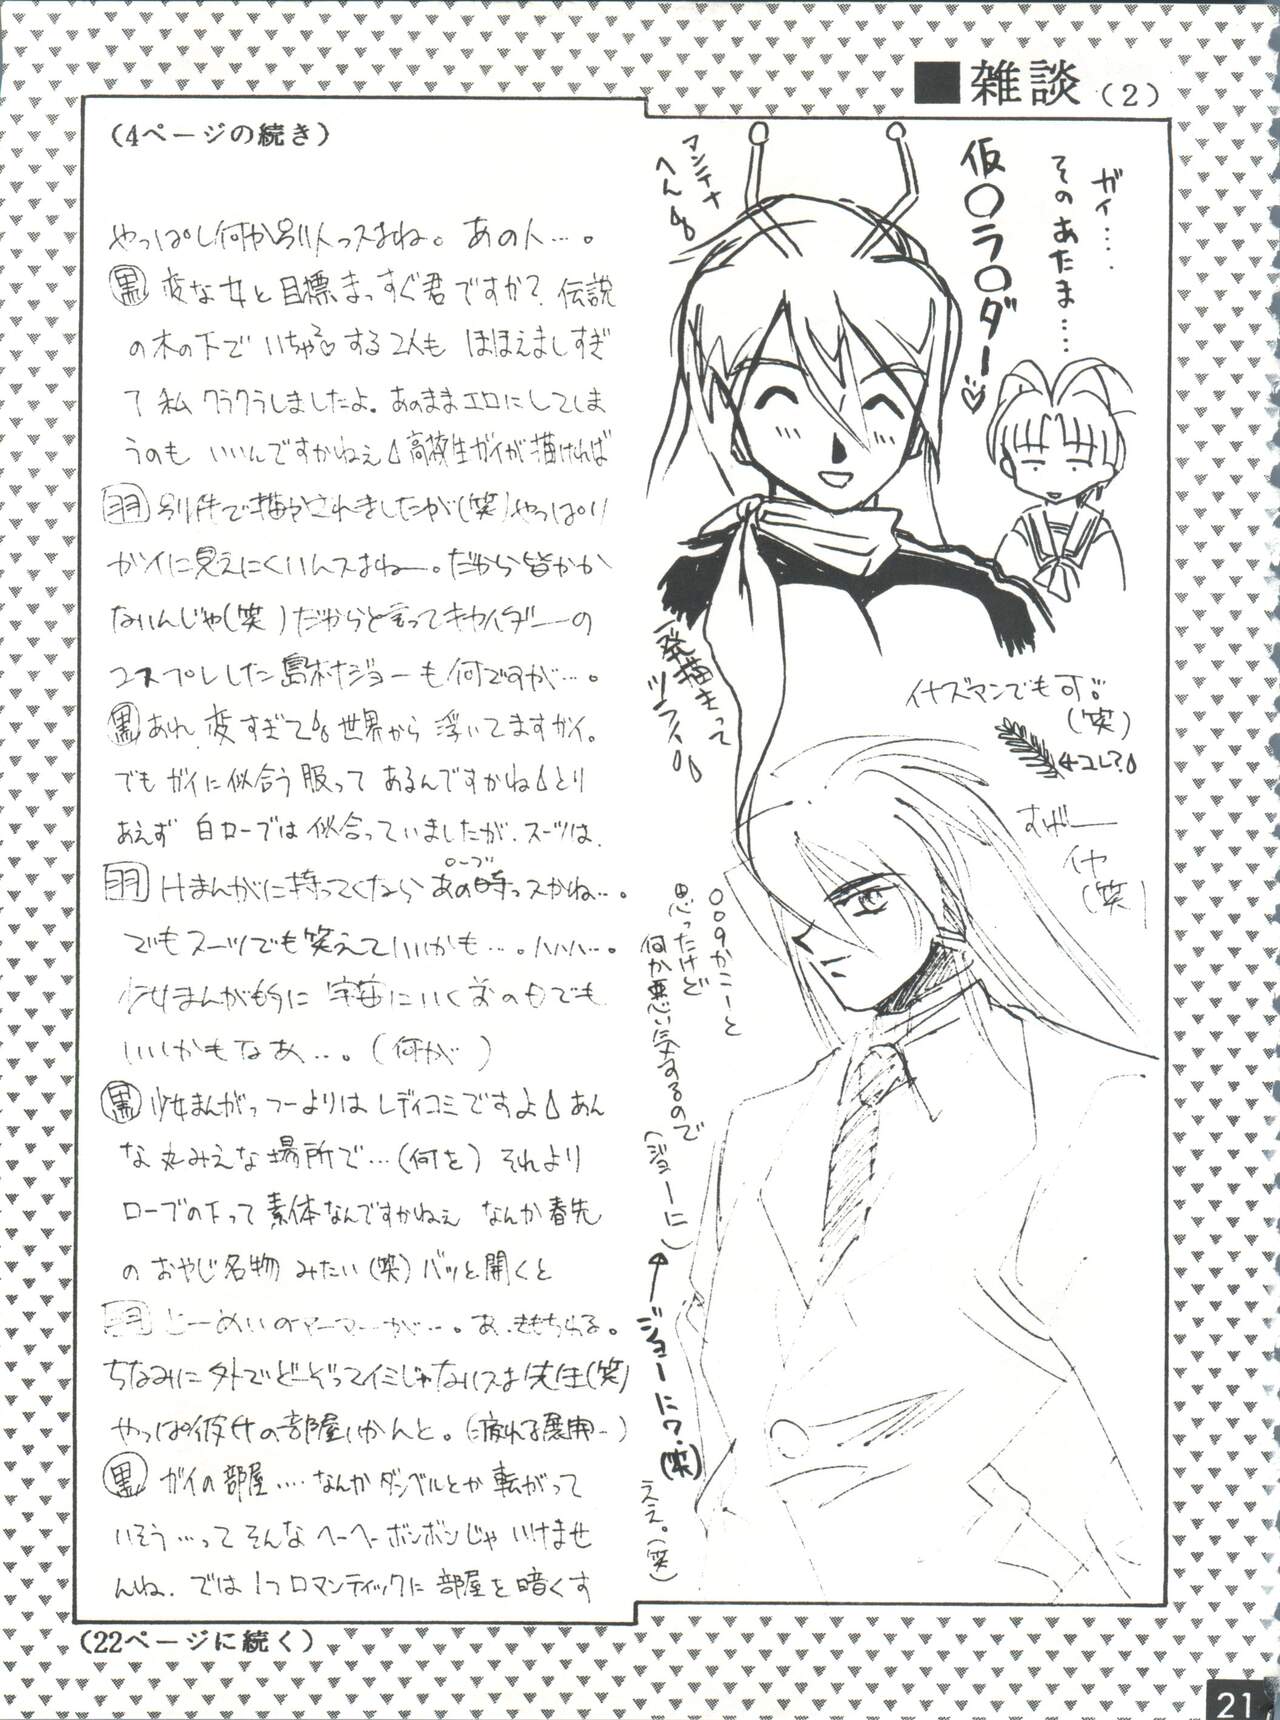 ■雑談（2）
（4ページの続き）
やっぱし何か別人っスよね。あの人…。
黒 変な女と目標まっすぐ君ですか？伝説
の木の下でいちゃつする2人もほほえましすぎ
て私クラクラしましたよ。あのままエロにしてしま
うのもいいんですかねぇ 高校生ガイが描ければ
羽 別件で描かされましたが(笑)やっぱり
ガイに見えにくいんスよねー。だから皆かか
ないんじゃ(笑)だからと言ってキカイダーの
コスプレした島村ジョーも何ですが…。
黒 あれ、変すぎて 世界から浮いてますガイ。
でもガイに似合う服ってあるんですかね とり
あえず白ローブでは似合っていましたが、スーツは、
羽 Hまんがに持ってくならあの時っスかね…。
ローブ
でもスーツでも笑えていいかも…。ハハハ…。
少女まんが的に宇宙にいく前のHでも
いいかもなあ…。(何が)
黒 少女まんがっつーよりはレディコミですよ あん
な丸みえな場所で…(何を)それより
ローブの下って素体なんですかねぇ なんか春先
のおやじ名物みたい(笑)バッと開くと
羽 とーめいのアーマーが…。あ、きもちわる。
ちなみに外でどーぞってイミじゃないスよ先生(笑)
やっぱ彼女の部屋いかんと。
黒 ガイの部屋…なんかダンベルとか転がって
いそう…ってそんなヘーヘーボンボンじゃいけませ
んね。では1つロマンティックに部屋を暗くす
（22ページに続く）
ガイ…
そのあたま……
仮○ラ○ダー♡
アンテナ
へん
一発描きって
ツライ
イナズマンでも可
(笑)
←コレ？
すげー
イヤ
(笑)
009かこーと
思ったけど
何か悪い気するので
(ジョーに)
←ジョーに？(笑)
ええ。(笑)
21